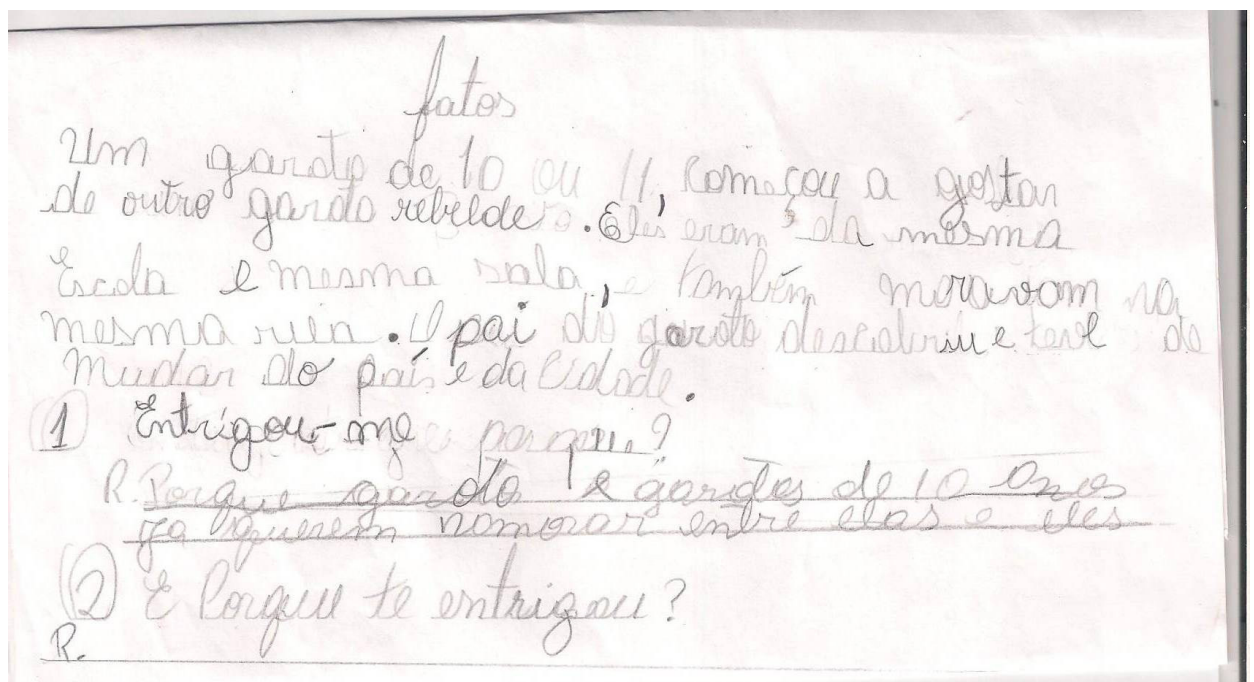 fatos
Um garoto de 10 ou 11, começou a gostar
de outro garoto rebelde. Eles eram da mesma
Escola e mesma sala, e também moravam na
mesma rua. O pai do garoto descobriu e teve de
Mudar do país e da Cidade.
1 Entrigou-me porque?
R. Porque garoto e garotos de 10 Anos
ja querem namorar entre elas e eles
2 E Porque te entrigou?
R.